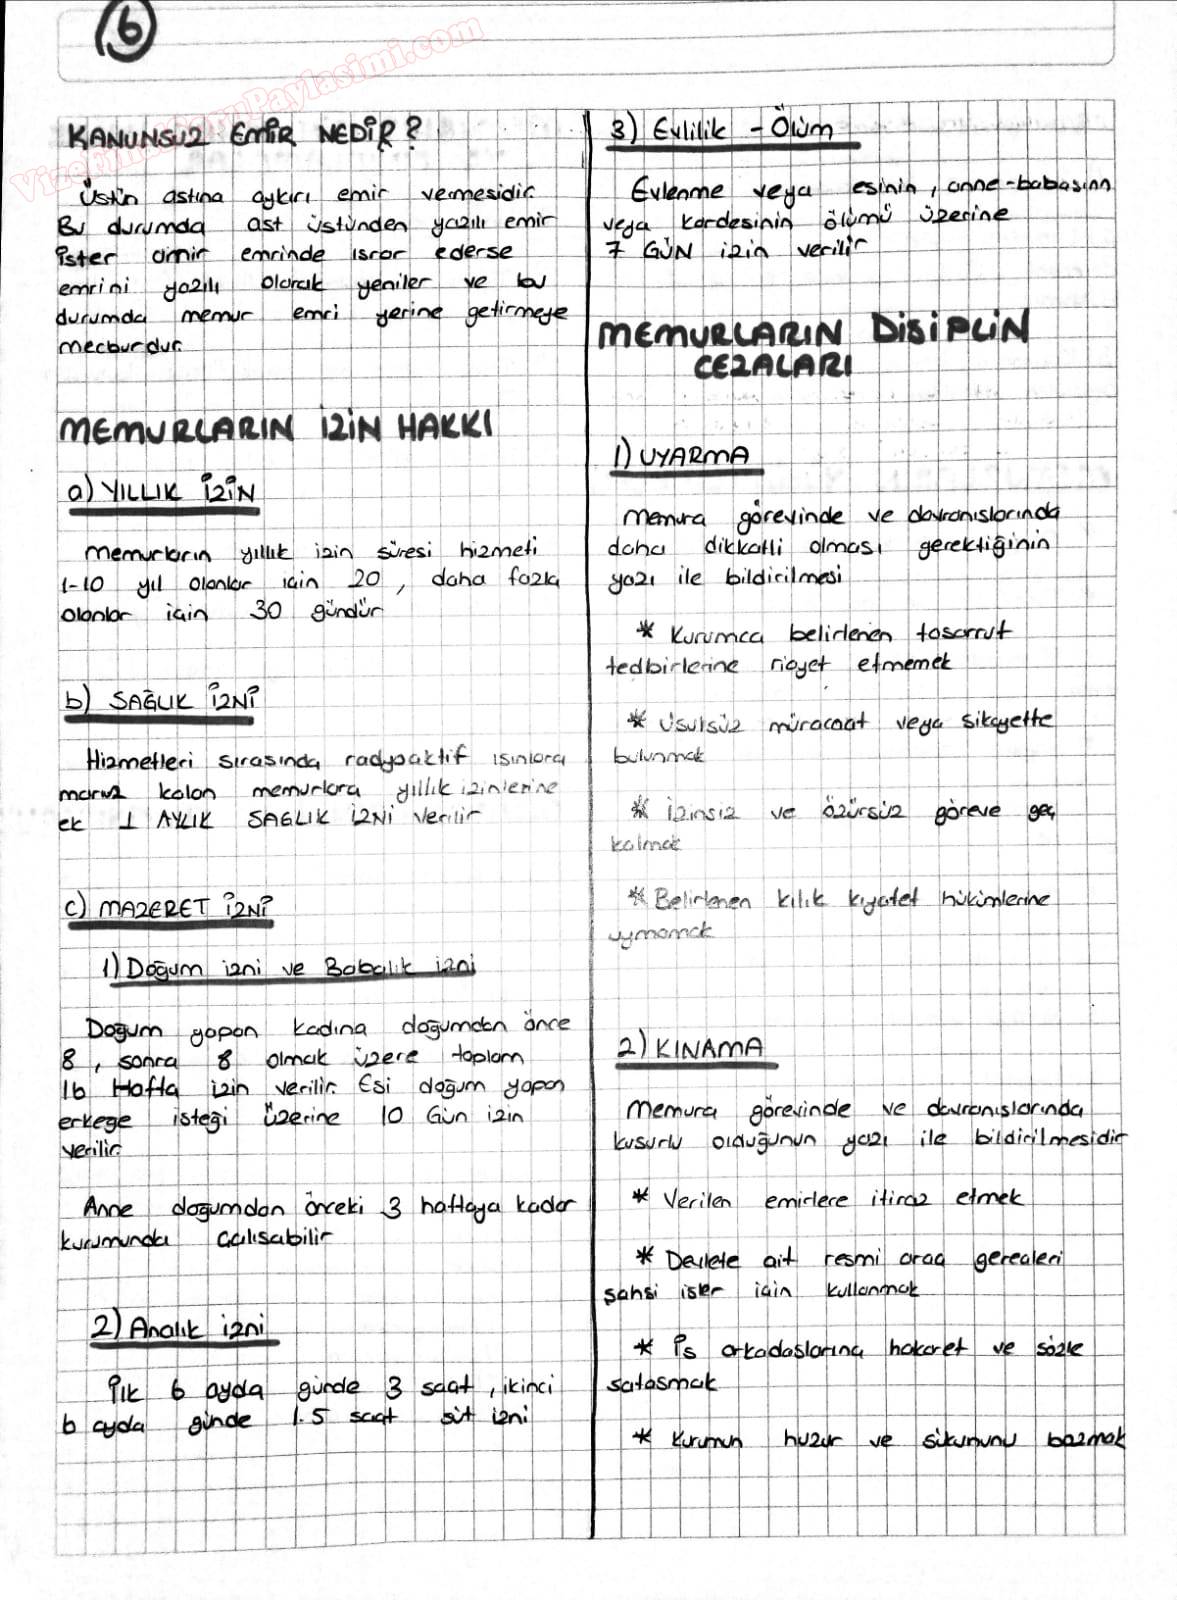 6
VizeFinalSoruPaylasimi.com
KANUNSUZ EMİR NEDİR?
Üstün astına aykırı emir vermesidir.
Bu durumda ast üstünden yazılı emir
ister amir emrinde ısrar ederse
emrini yazılı olarak yeniler ve bu
durumda memur emri yerine getirmeye
mecburdur.
MEMURLARIN İZİN HAKKI
a) YILLIK İZİN
Memurların yıllık izin süresi hizmeti
1-10 yıl olanlar için 20, daha fazla
olanlar için 30 gündür
b) SAĞLIK İZNİ
Hizmetleri sırasında radyoaktif ısınlara
maruz kalan memurlara yıllık izinlerine
ek 1 AYLIK SAGLIK İZNİ verilir
c) MAZERET İZNİ
1) Doğum izni ve Babalık izni
Doğum yapan kadına doğumdan önce
8, sonra 8 olmak üzere toplam
16 Hafta izin verilir. Esi doğum yapan
erkege isteği üzerine 10 Gün izin
verilir.
Anne dogumdan önceki 3 haftaya kadar
kurumunda çalısabilir
2) Analık izni
İlk 6 ayda günde 3 saat, ikinci
6 ayda günde 1.5 saat süt izni
3) Evlilik - Ölüm
Evlenme veya esinin, anne-babasının
veya kardesinin ölümü üzerine
7 GÜN izin verilir
MEMURLARIN DİSİPLİN
CEZALARI
1) UYARMA
Memura görevinde ve davranıslarında
daha dikkatli olması gerektiğinin
yazı ile bildirilmesi
* Kurumca belirlenen tasarruf
tedbirlerine riayet etmemek
* Usulsüz müracaat veya sikayette
bulunmak
* İzinsiz ve özürsüz göreve geç
kalmak
* Belirlenen kılık kıyafet hükümlerine
uymamak
2) KINAMA
Memura görevinde ve davranıslarında
kusurlu olduğunun yazı ile bildirilmesidir
* Verilen emirlere itiraz etmek
* Devlete ait resmi araç gereçleri
şahsi isler için kullanmak
* İs arkadaslarına hakaret ve sözle
satasmak
* Kurumun huzur ve sükununu bozmak